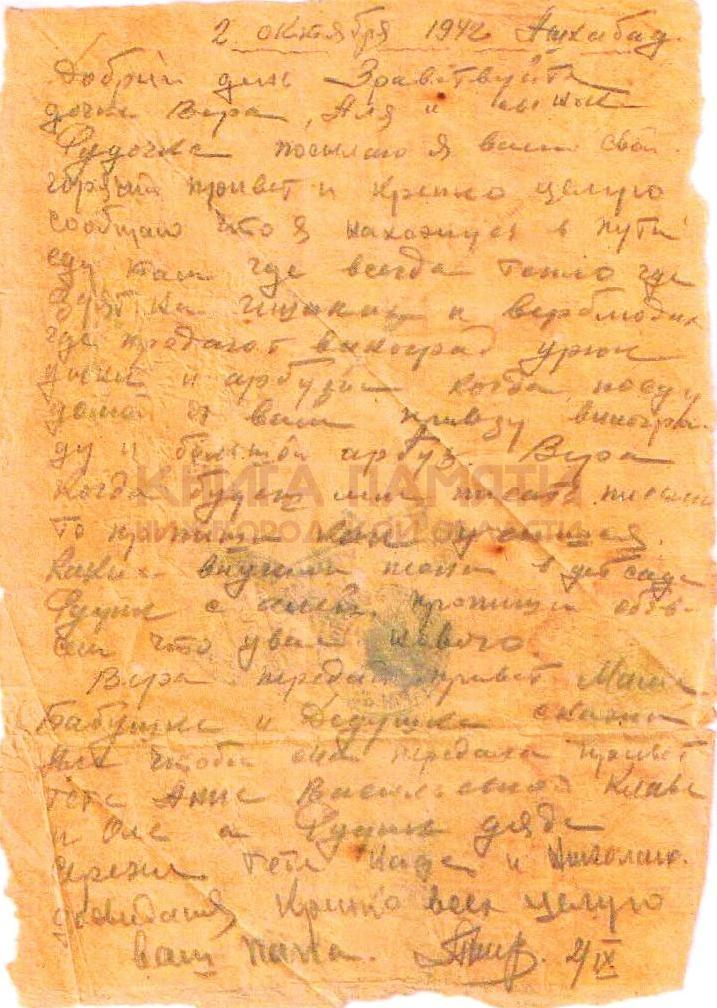 2 октября 1942 Ашхабад.
Добрый день Здравствуйте
дочки Вера, Аля и сынок
Фудочка посылаю я вам свой
горячий привет и крепко целую
сообщаю что я нахожусь в пути
еду там где всегда тепло где
на ишаках и верблюдах
где продают виноград урюк
дыни и арбузы когда поеду
домой к вам привезу виногра-
ду и большой арбуз. Вера
Когда будеш мне писать письмо
КНИГА ПАМЯТИ
НИЖЕГОРОДСКОЙ ОБЛАСТИ
то пропиши как учишся.
Какие выучили песни в дет саде
Фудик с Алей, пропиши обо в-
сем что у вас нового.
Вера передай привет Маме
Бабушке и Дедушке скажи
Але чтобы она передала привет
тете Анне Васильевной Клаве
и Оле а Фудик дяде
Сереже тете Наде и Николаю.
досвидания Крепко всех целую
ваш папа. 2/IX